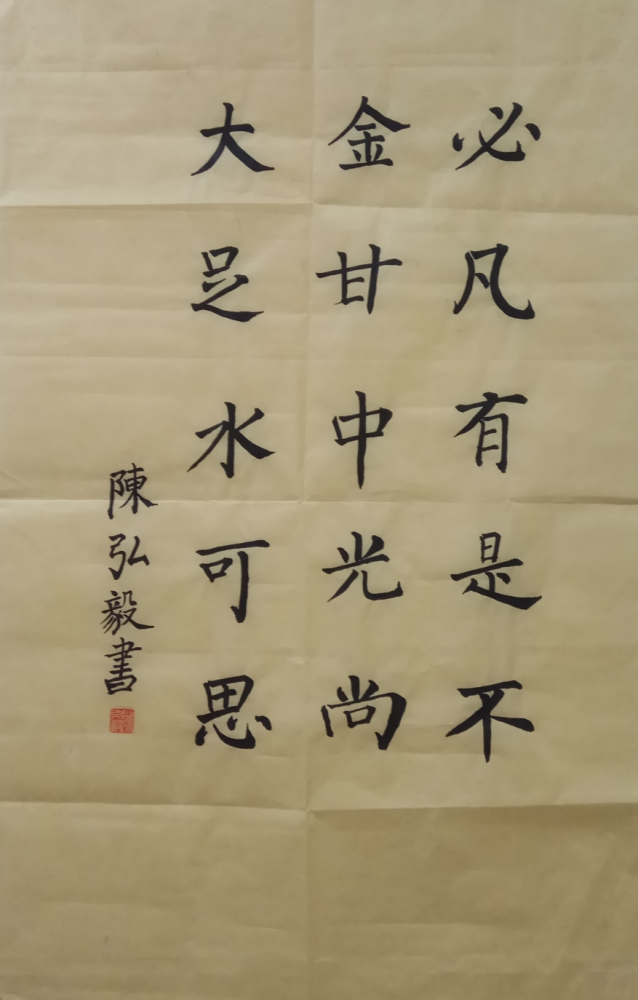 必凡有是不
金甘中光尚
大足水可思
陳弘毅書